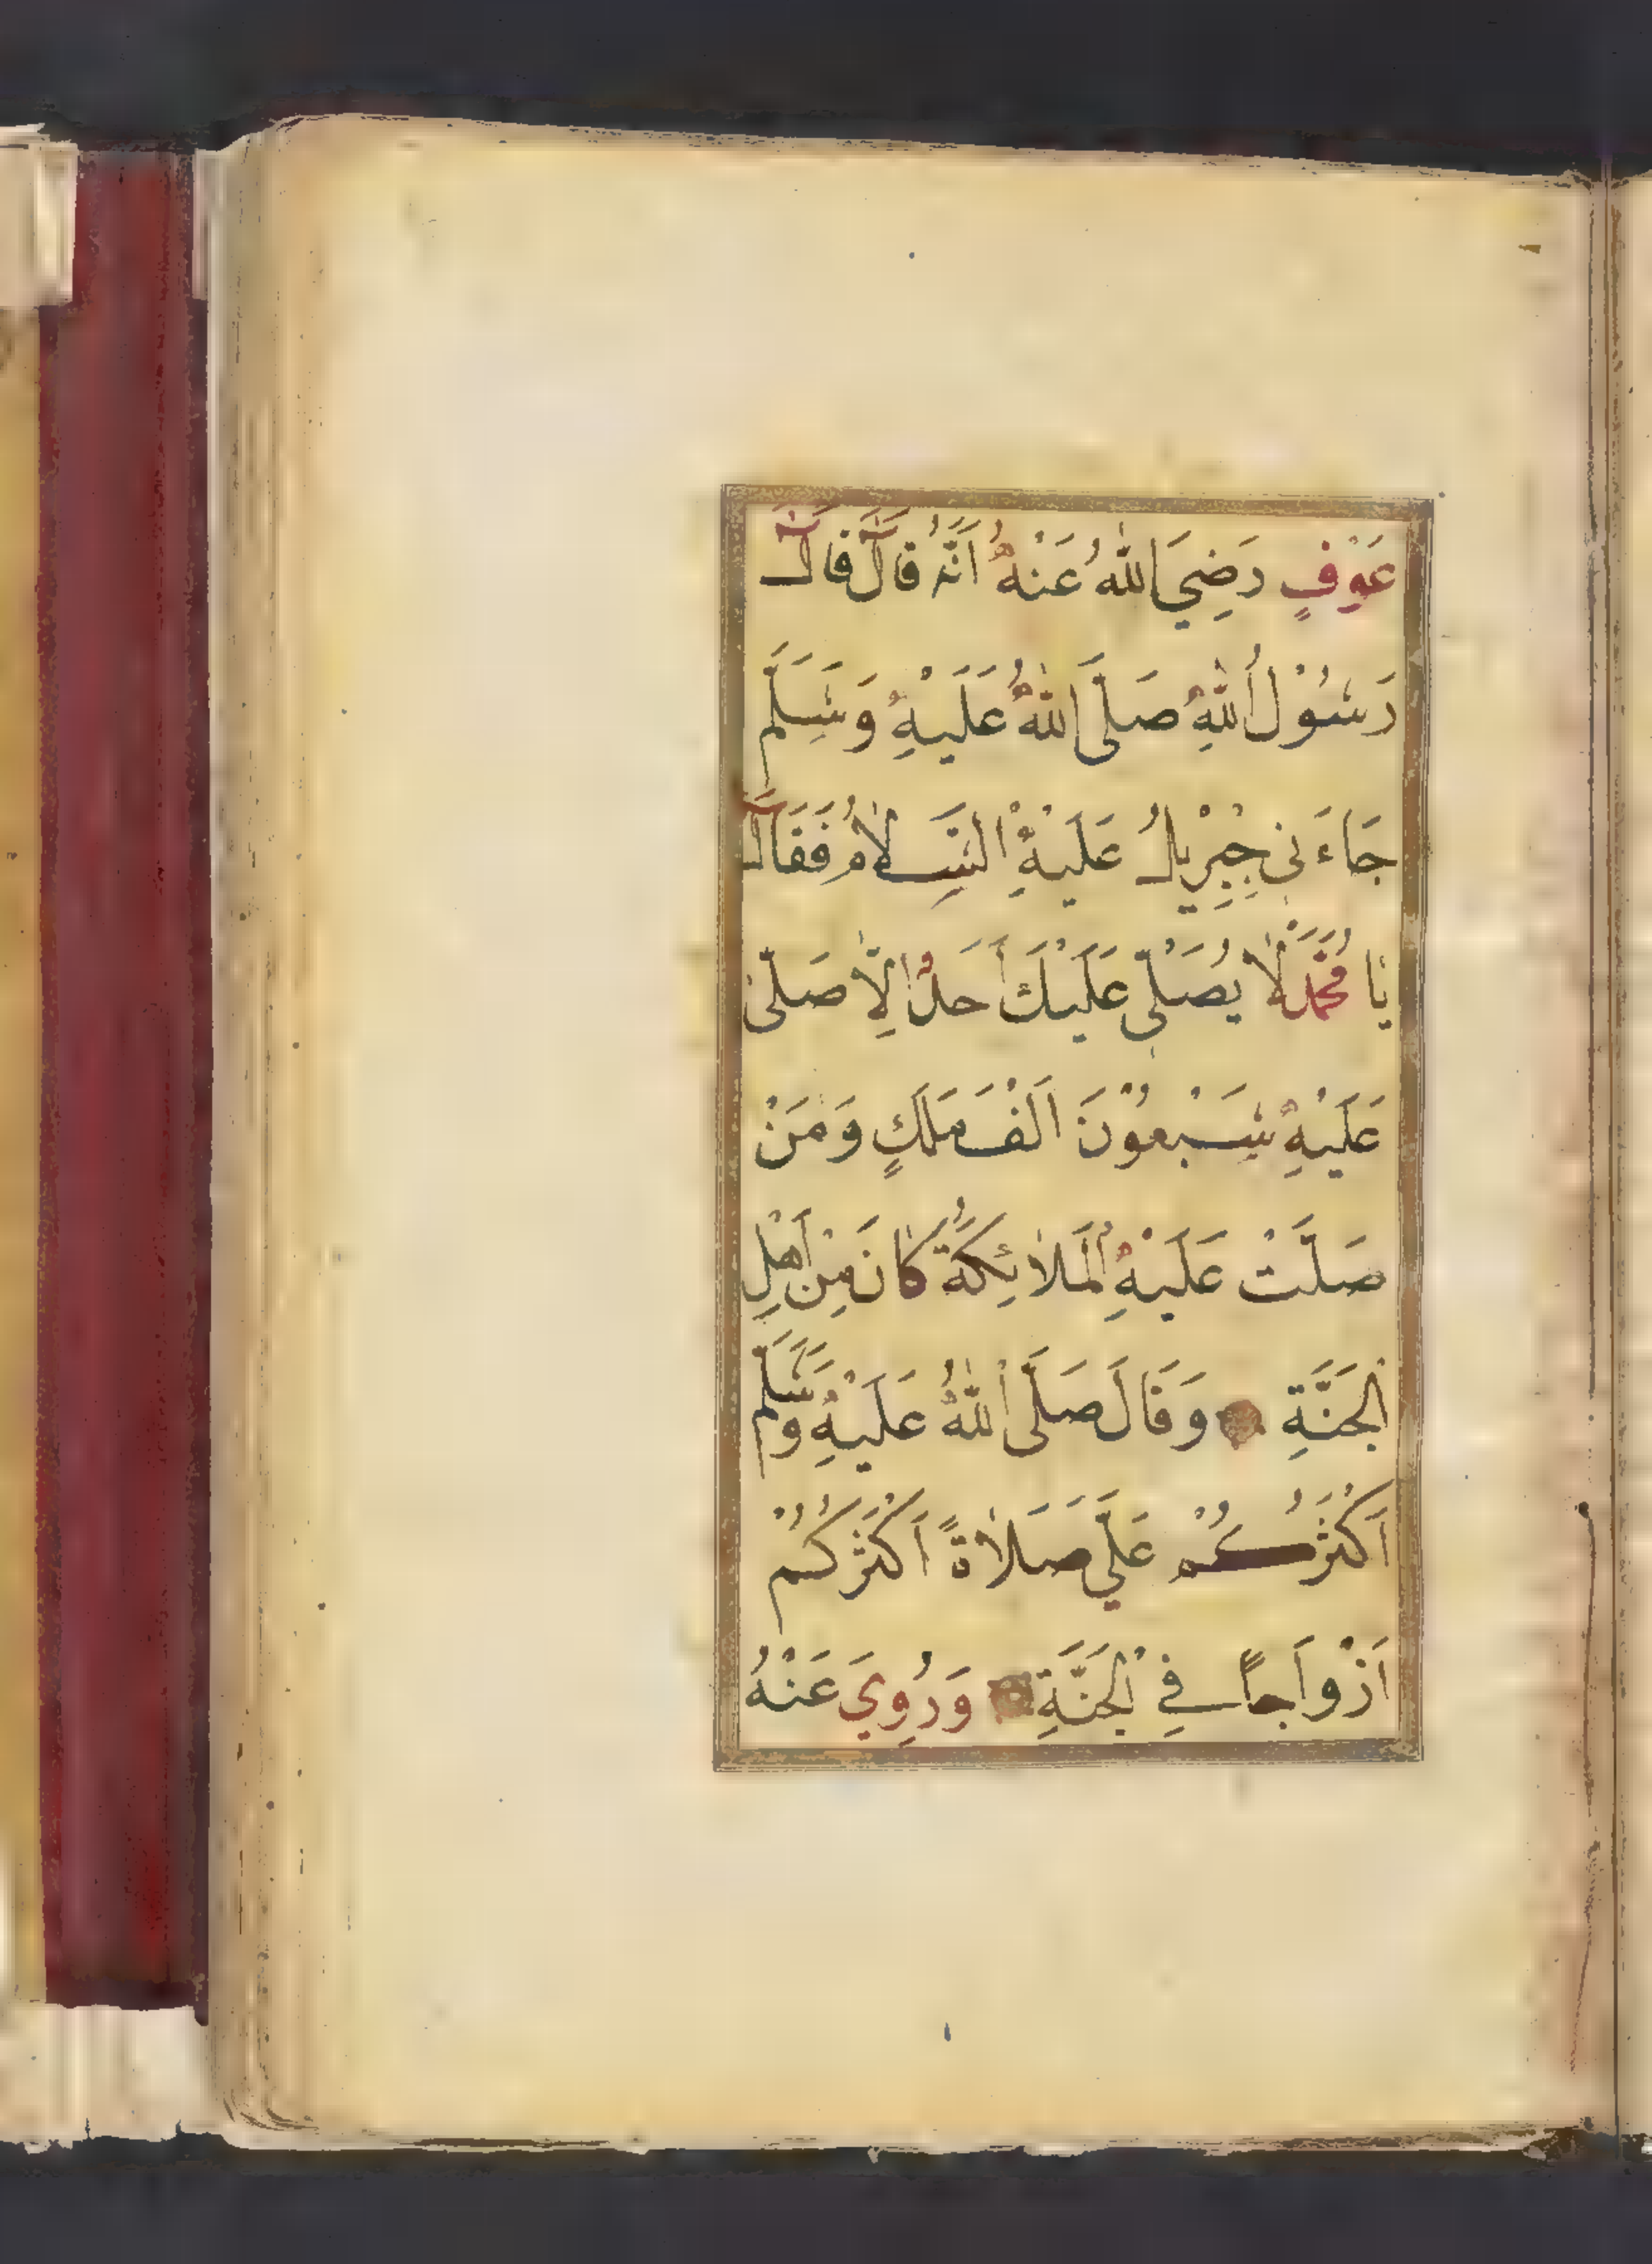 عَوْفٍ رَضِيَ اللهُ عَنْهُ اَنَّهُ قَالَ قَالَ
رَسُوْلُ اللهِ صَلَّى اللهُ عَلَيْهِ وَسَلَّمَ
جَاءَنِي جِبْرِيلُ عَلَيْهِ السَّلَامُ فَقَالَ
يَا مُحَمَّدُ لَا يُصَلِّي عَلَيْكَ أَحَدٌ اِلَّا صَلَّى
عَلَيْهِ سَبْعُوْنَ اَلْفَ مَلَكٍ وَمَنْ
صَلَّتْ عَلَيْهِ الْمَلَائِكَةُ كَانَ مِنْ اَهْلِ
الْجَنَّةِ وَقَالَ صَلَّى اللهُ عَلَيْهِ وَسَلَّمَ
اَكْثَرُكُمْ عَلَيَّ صَلَاةً اَكْثَرُكُمْ
اَزْوَاجًا فِي الْجَنَّةِ وَرُوِيَ عَنْهُ